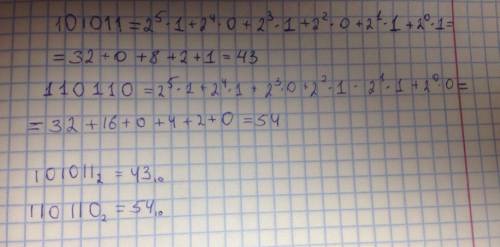 101011 = 2⁵·1 + 2⁴·0 + 2³·1 + 2²·0 + 2¹·1 + 2⁰·1 =
= 32 + 0 + 8 + 2 + 1 = 43
110110 = 2⁵·1 + 2⁴·1 + 2³·0 + 2²·1 - 2¹·1 + 2⁰·0 =
= 32 + 16 + 0 + 4 + 2 + 0 = 54
101011₂ = 43₁₀
110110₂ = 54₁₀